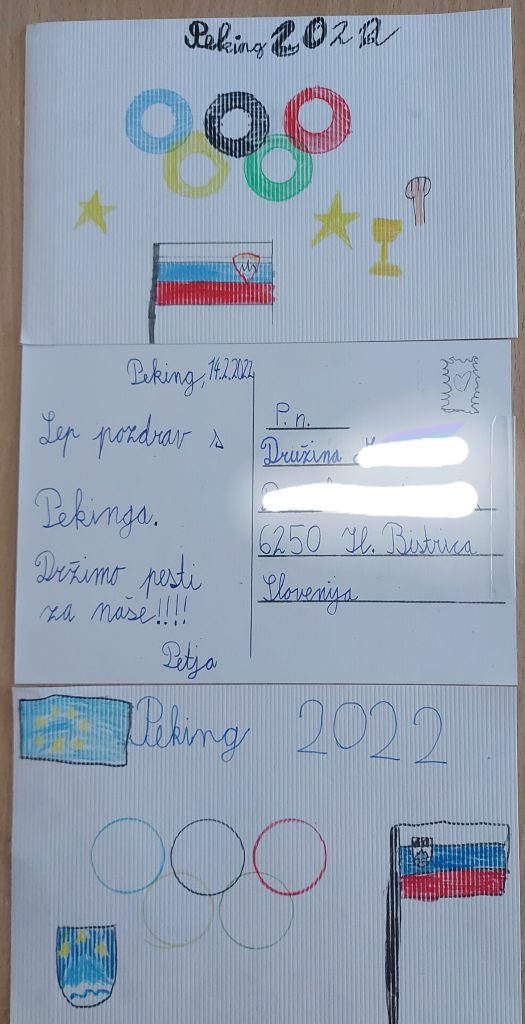 Peking 2022
Peking, 14.2.2022
Lep pozdrav s
Pekinga.
Držimo pesti
za naše!!!!
Petja
P. n.
Družina
6250 Il. Bistrica
Slovenija
Peking 2022